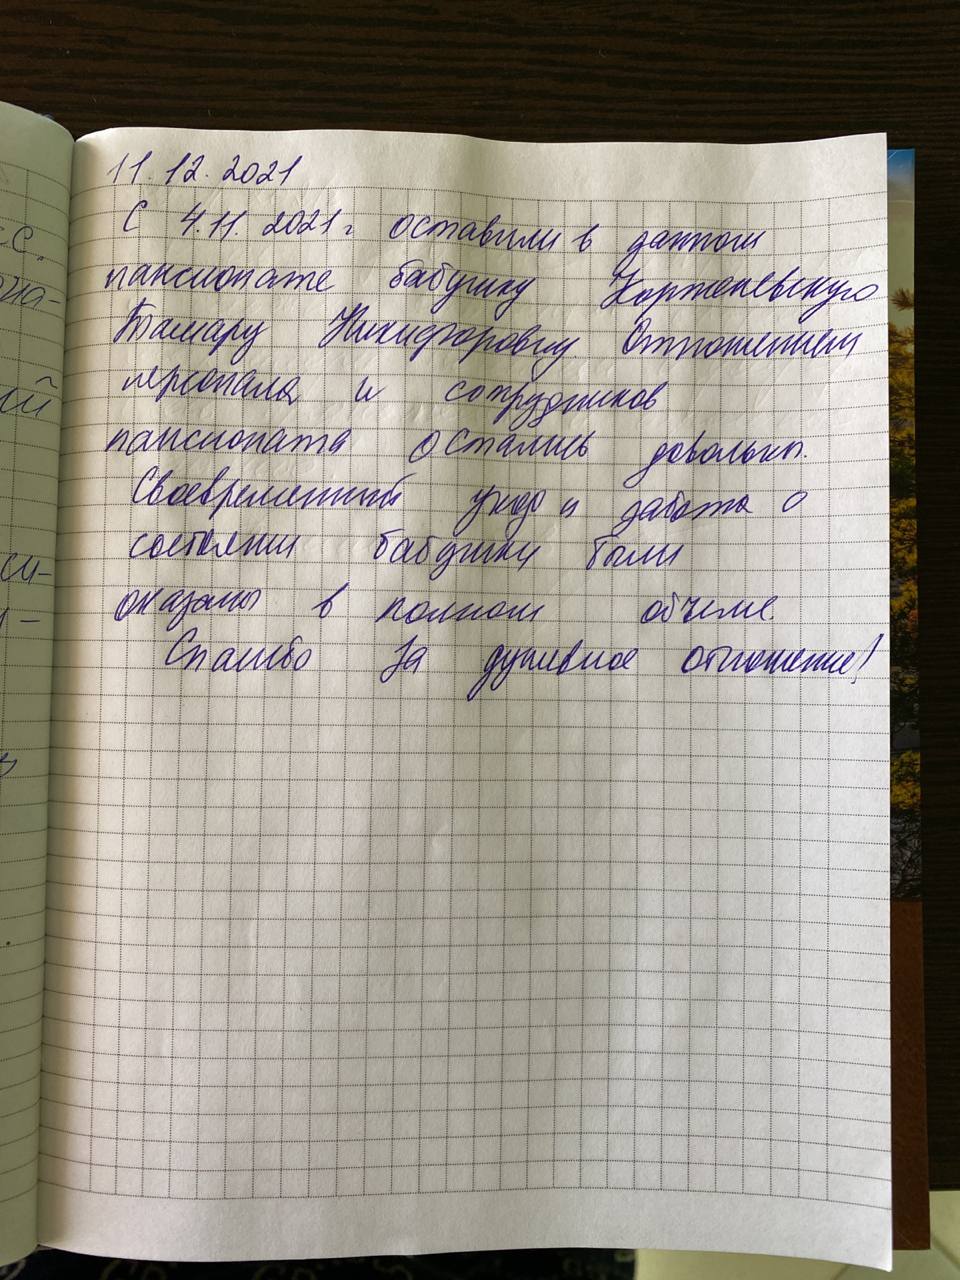 11.12.2021
С 4.11.2021г. оставили в данном
пансионате бабушку
Тамару Никифоровну. Отношением
персонала и сотрудников
пансионата остались довольны.
Своевременный уход и забота о
состоянии бабушки были
оказаны в полном объеме.
Спасибо за душевное отношение!